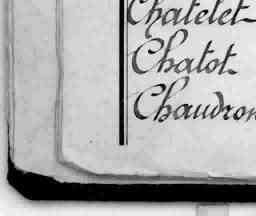 Chatelet
Chatot
Chaudron